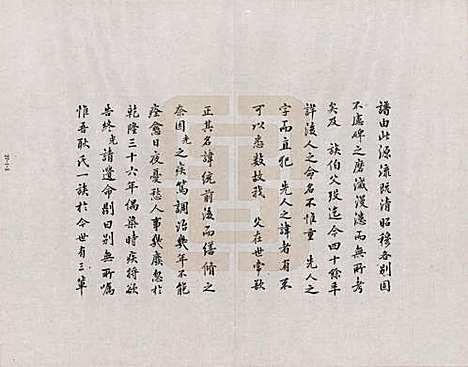 譜由此源流既清昭穆各別固
不慮碑之磨滅漫漶而無所考
矣及 族伯父歿迄今四十餘年
詳後人之命名不惟重 先人之
字而直犯 先人之諱者有不
可以悉數故我 父在世常欲
正其名諱統前後而繕脩之
奈因光之疾篤調治幾年不能
痊愈日夜憂愁人事幾廢忽於
乾隆三十六年偶染時疾將欲
告終光請遺命別曰別無所囑
惟吾耿氏一族於今世有三單